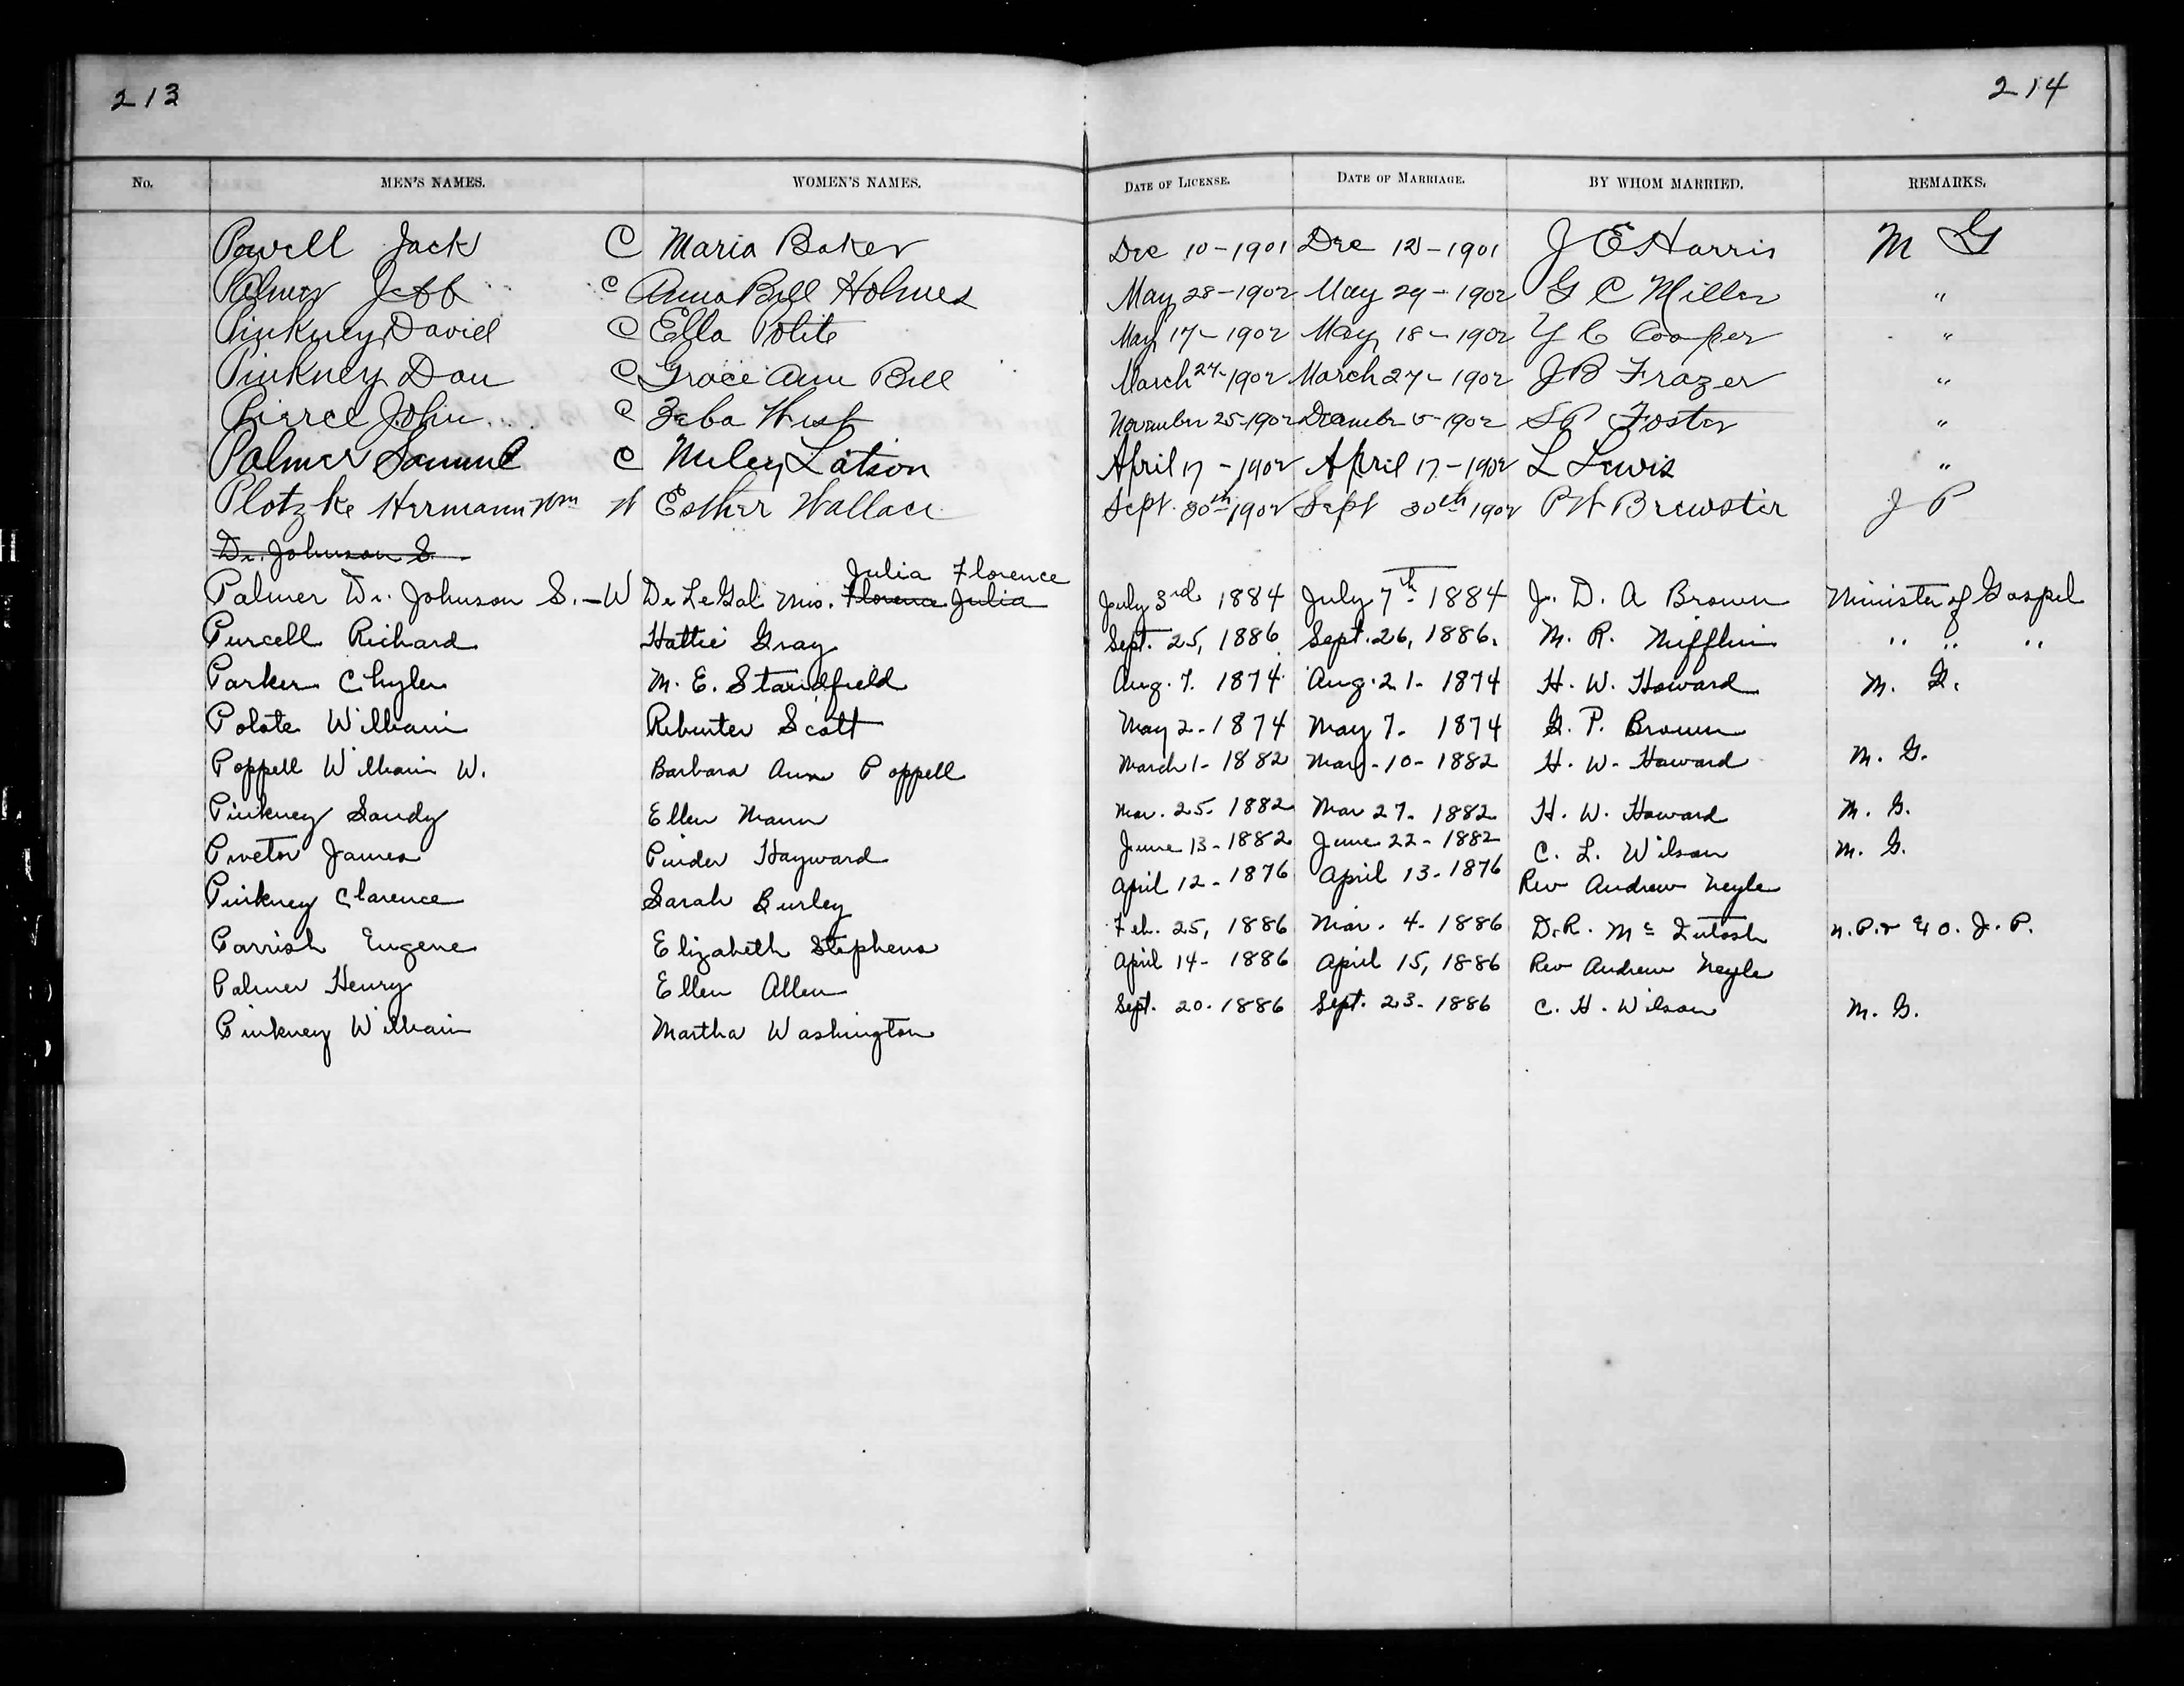 213
214
No. MEN'S NAMES. WOMEN'S NAMES. DATE OF LICENSE. DATE OF MARRIAGE. BY WHOM MARRIED. REMARKS.
Powell Jack C Maria Baker Dec 10-1901 Dec 12-1901 J E Harris M G
Palmer Jeff C Anna Bell Holmes May 28-1902 May 29-1902 G C Miller "
Pinkney David C Ella Polite May 17-1902 May 18-1902 Y C Cooper "
Pinkney Dan C Grace Ann Bell March 27-1902 March 27-1902 J B Frazer "
Pierce John C Zeba West November 25-1902 December 5-1902 S P Foster "
Palmer Samuel C Meley Latson April 17-1902 April 17-1902 L Lewis "
Plotzke Hermann Wm W Esther Wallace Sept. 30th 1902 Sept 30th 1902 P W Brewster J P
Dr. Johnson S.
Julia Florence
Palmer Dr. Johnson S. - W De LeGal Miss. Florence Julia July 3rd 1884 July 7th 1884 J. D. A Brown Minister of Gospel
Purcell Richard Hattie Gray Sept. 25, 1886 Sept. 26, 1886. M. R. Mifflin " " "
Parker Chyler M. E. Standfield Aug. 7. 1874 Aug. 21. 1874 H. W. Howard M. G.
Polate William Rebuiter Scott May 2-1874 May 7. 1874 G. P. Brown
Poppell William W. Barbara Ann Poppell March 1-1882 Mar-10-1882 H. W. Howard M. G.
Pinkney Sandy Ellen Mann Mar. 25. 1882 Mar 27. 1882 H. W. Howard M. G.
Proctor James Pinder Hayward June 13-1882 June 22-1882 C. L. Wilson M. G.
Pinkney Clarence Sarah Burley April 12-1876 April 13-1876 Rev Andrew Neyle
Parrish Eugene Elizabeth Stephens Feb. 25, 1886 Mar. 4. 1886 D. R. McIntosh N. P. & Ex O. J. P.
Palmer Henry Ellen Allen April 14- 1886 April 15, 1886 Rev Andrew Neyle
Pinkney William Martha Washington Sept. 20. 1886 Sept. 23. 1886 C. H. Wilson M. G.